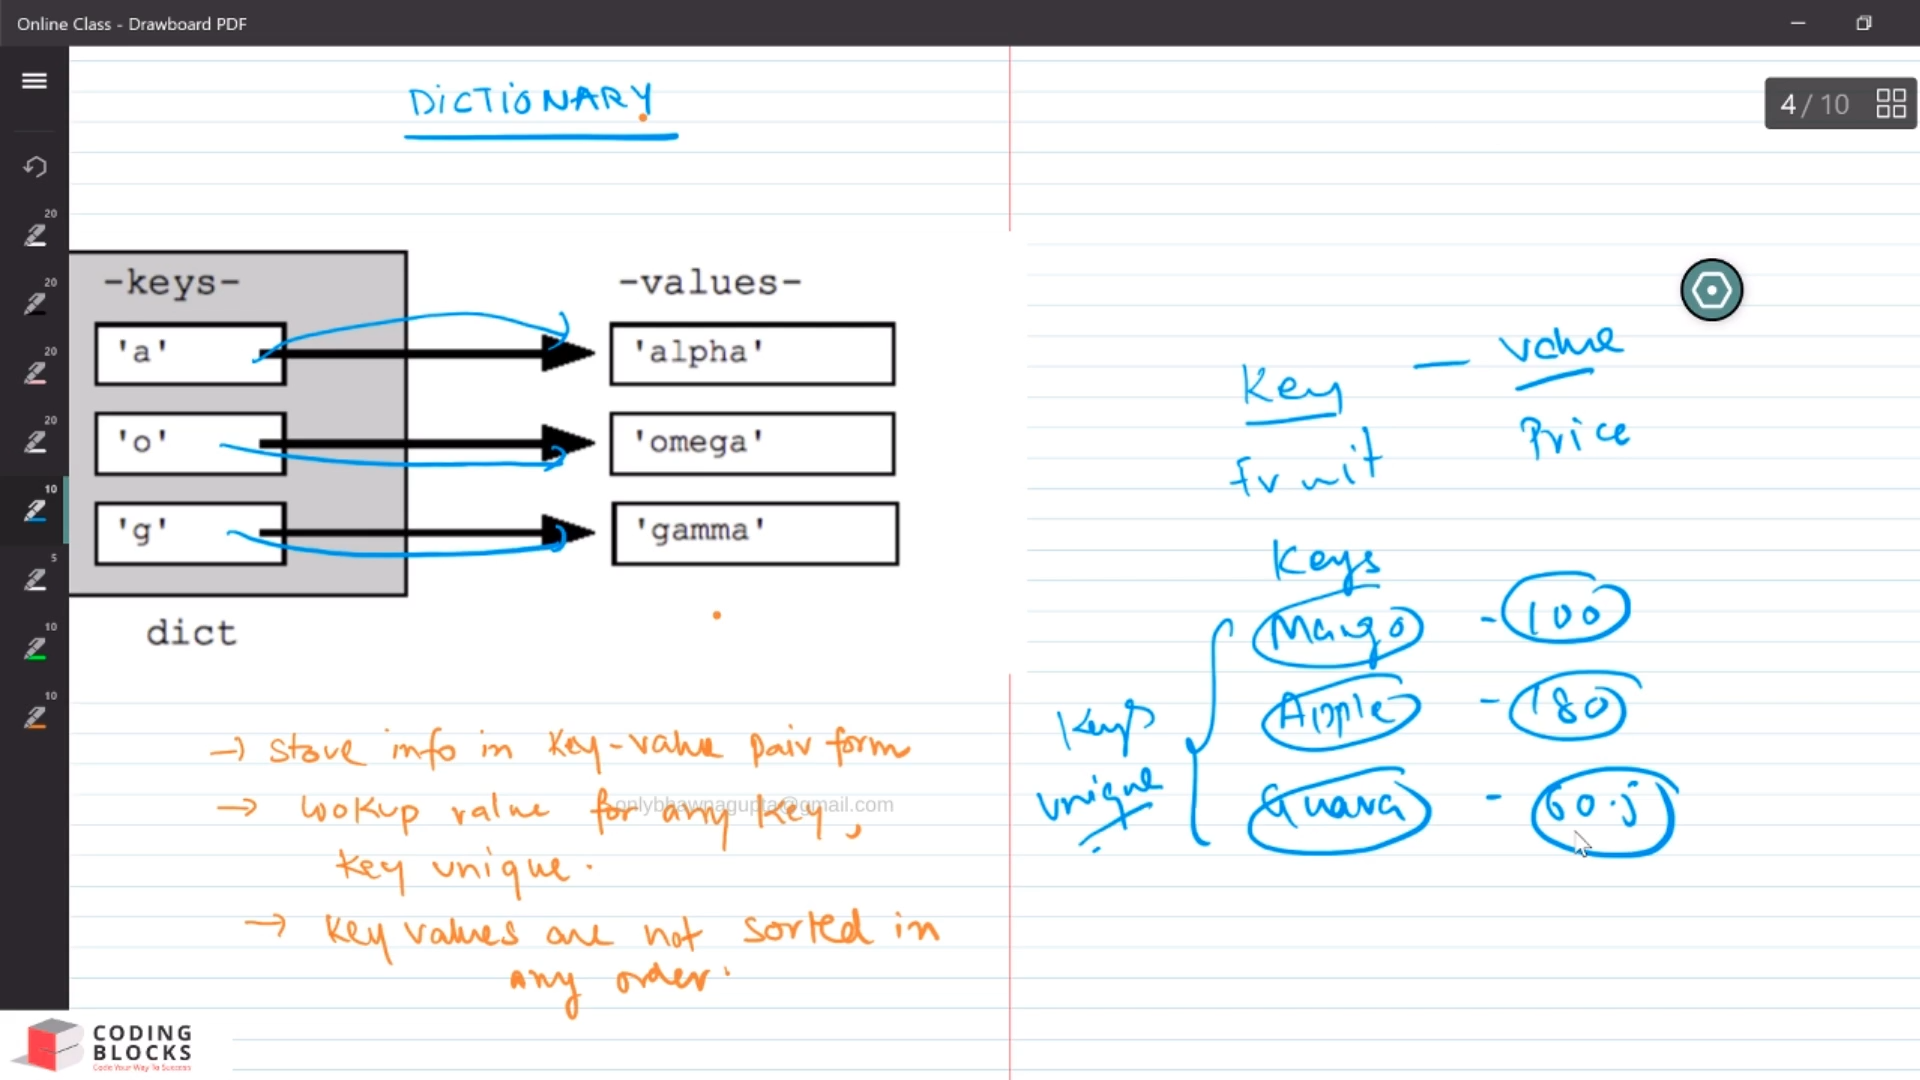 Online Class - Drawboard PDF
DICTIONARY
4 / 10
20
20
20
20
10
5
10
10
-keys-
-values-
'a'
'alpha'
'o'
'omega'
'g'
'gamma'
dict
→ store info in key-value pair form
→ lookup value for any key,
key unique.
→ key values are not sorted in
any order.
onlybhawnagupta@gmail.com
Key — value
fruit Price
Keys
Mango - 100
Apple - 180
Guava - 60.5
Keys
unique
CODING
BLOCKS
Code Your Way To Success